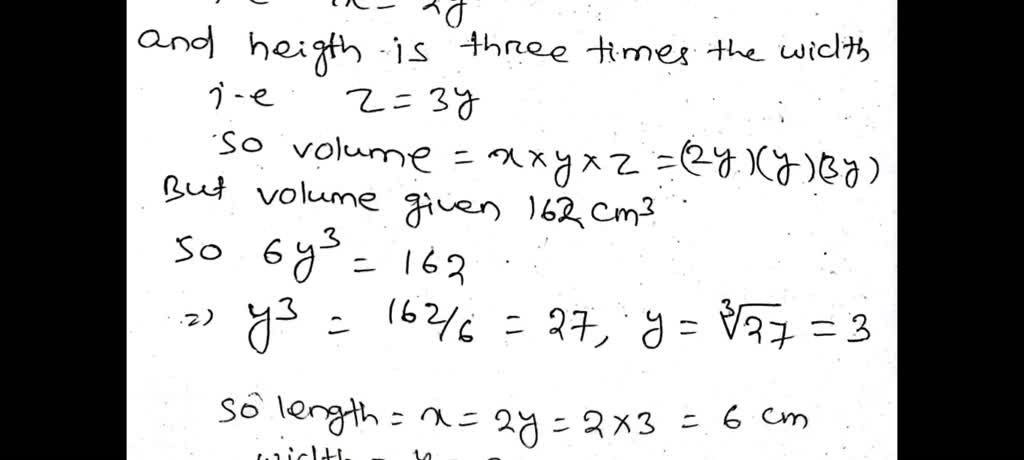 x = 2y
and heigth is three times the width
i-e z = 3y
So volume = x×y×z = (2y)(y)(3y)
But volume given 162 cm³
So 6y³ = 162
=) y³ = 162/6 = 27, y = ∛27 = 3
so length = x = 2y = 2×3 = 6 cm
width = y